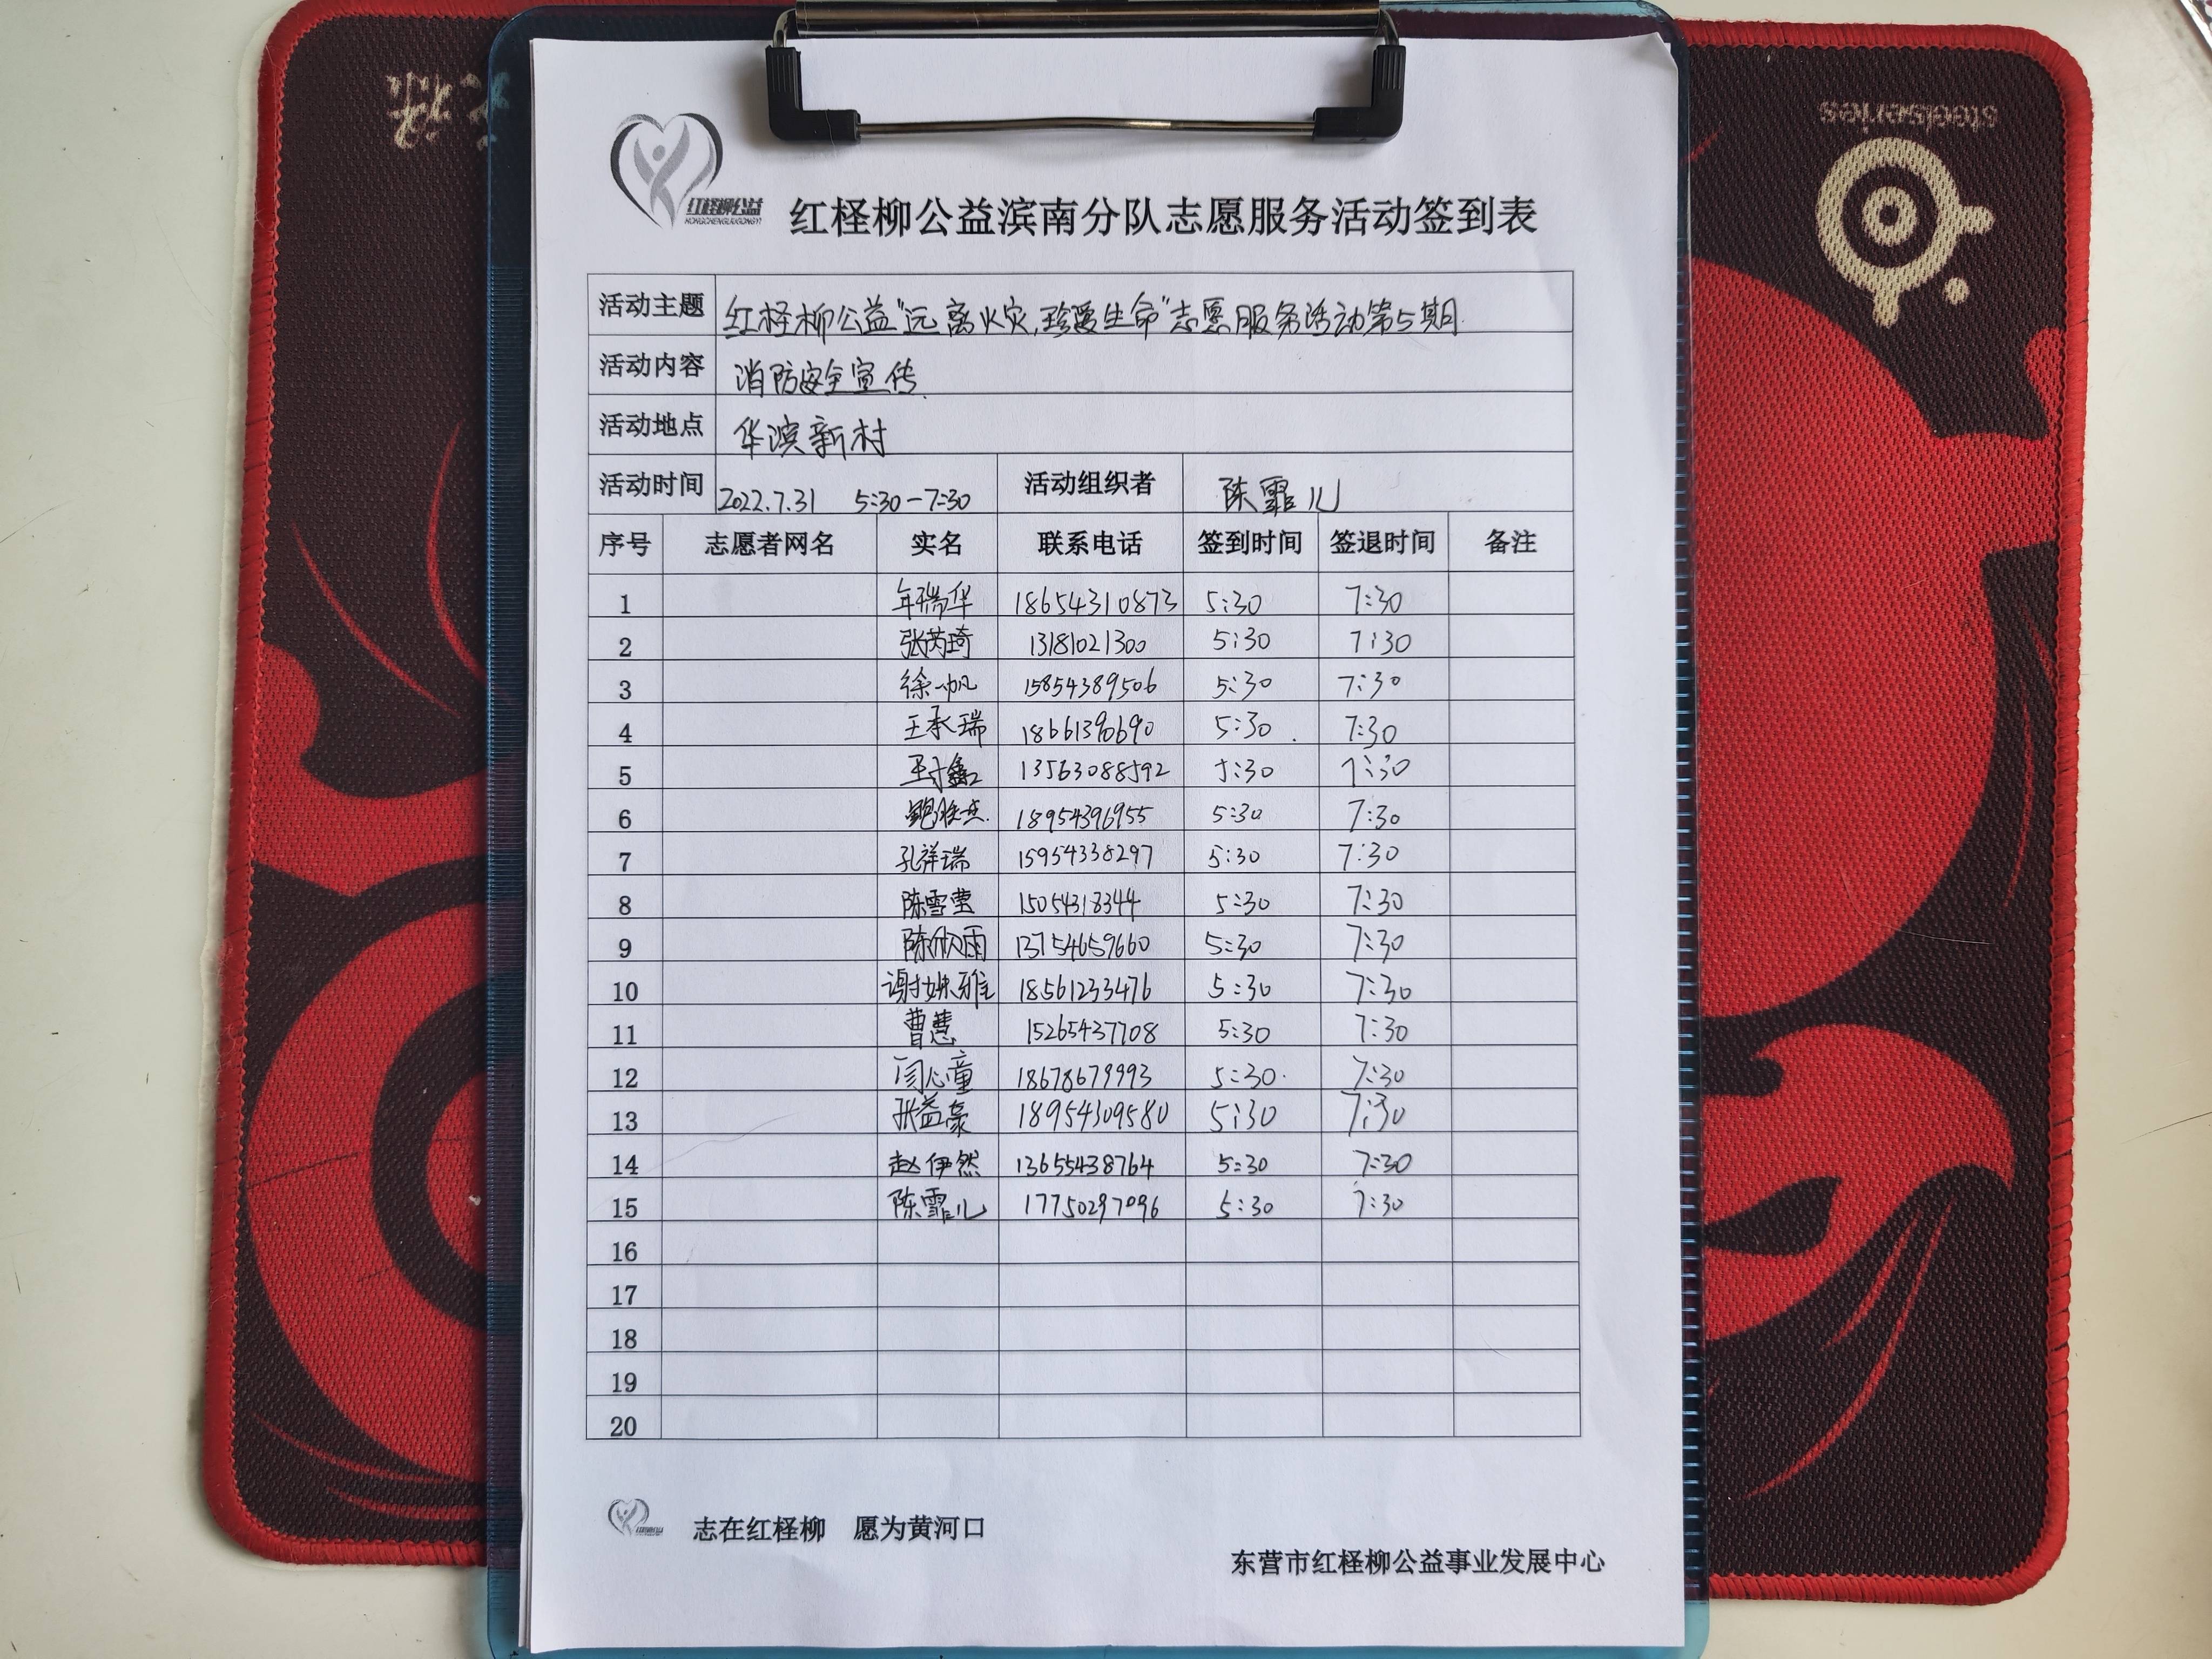 steelseries
红柽柳公益
HONGCHENGLIUGONGYI
红柽柳公益滨南分队志愿服务活动签到表
活动主题 红柽柳公益"远离火灾,珍爱生命"志愿服务活动第5期
活动内容 消防安全宣传
活动地点 华滨新村
活动时间 2022.7.31 5:30-7:30 活动组织者 陈霏儿
序号 志愿者网名 实名 联系电话 签到时间 签退时间 备注
1 年瑞华 18654310873 5:30 7:30
2 张芮琦 13181021300 5:30 7:30
3 徐一帆 15854389506 5:30 7:30
4 王承瑞 18661390690 5:30 7:30
5 13563088592 5:30 7:30
6 18954396955 5:30 7:30
7 孔祥瑞 15954338297 5:30 7:30
8 陈雪莹 15054318344 5:30 7:30
9 陈欣雨 13754659660 5:30 7:30
10 谢姝雅 18561233476 5:30 7:30
11 曹慧 15265437708 5:30 7:30
12 闫心童 18678679993 5:30 7:30
13 张益豪 18954309580 5:30 7:30
14 赵伊然 13655438764 5:30 7:30
15 陈霏儿 17750297096 5:30 7:30
16
17
18
19
20
志在红柽柳 愿为黄河口
东营市红柽柳公益事业发展中心